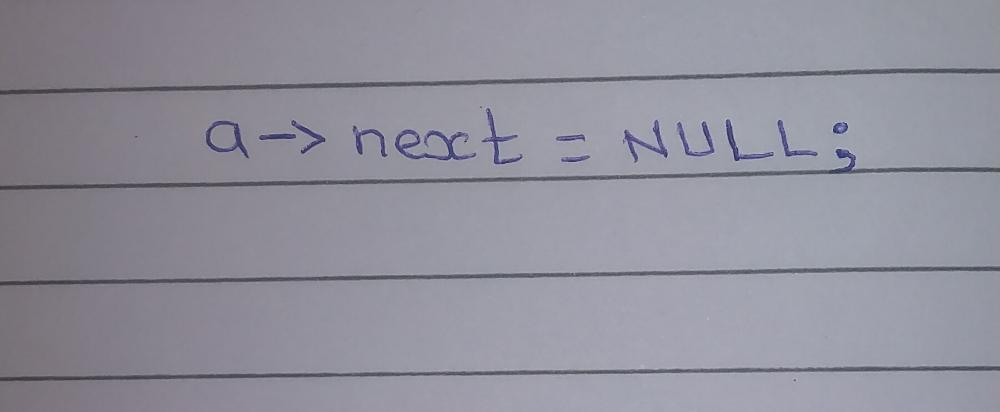 a -> next = NULL;